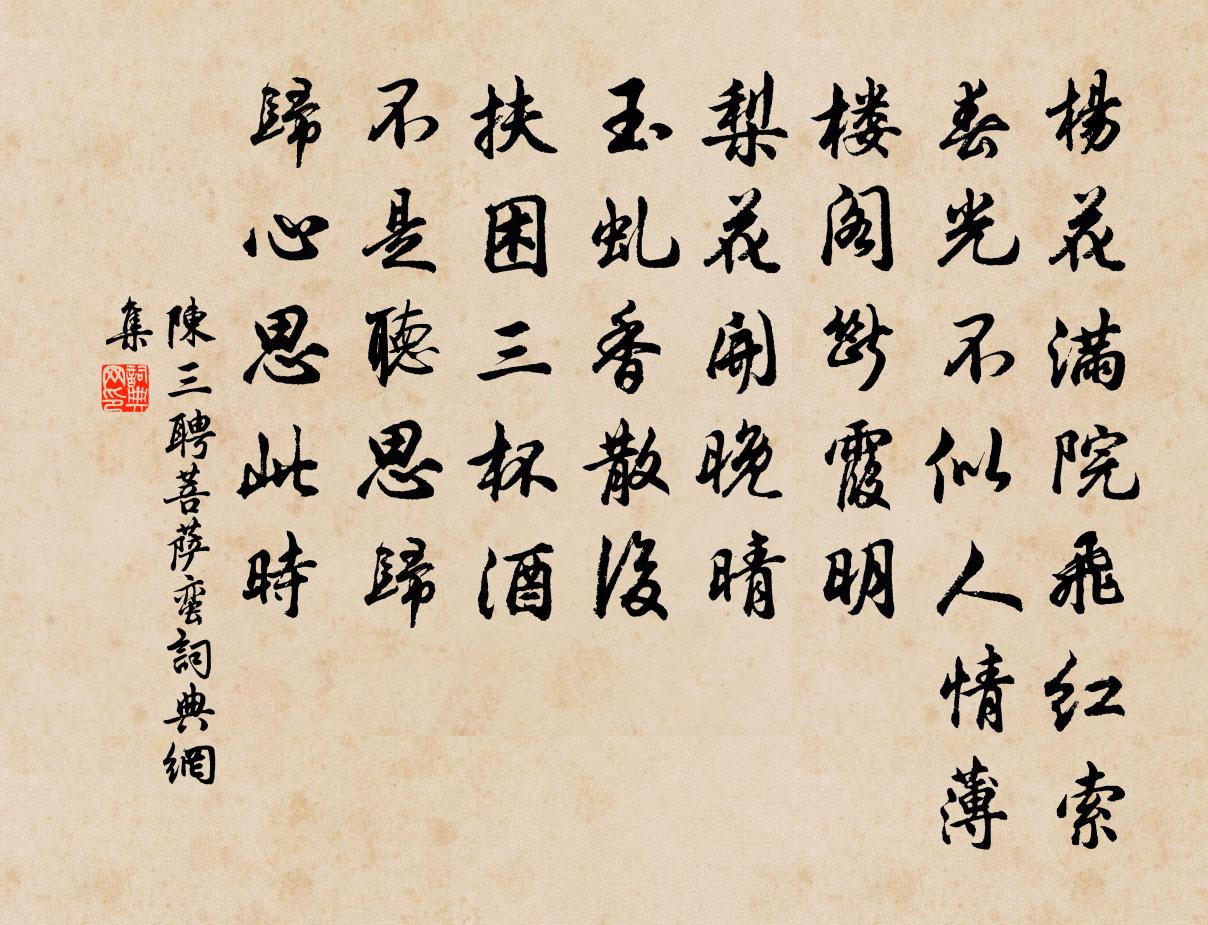 楊花滿院飛紅索
春光不似人情薄
楼阁斷霞明
梨花開晚晴
玉虬香散後
扶困三杯酒
不是聽思歸
歸心思此時
陳三聘菩萨蛮詞典網
集
詞典
网印